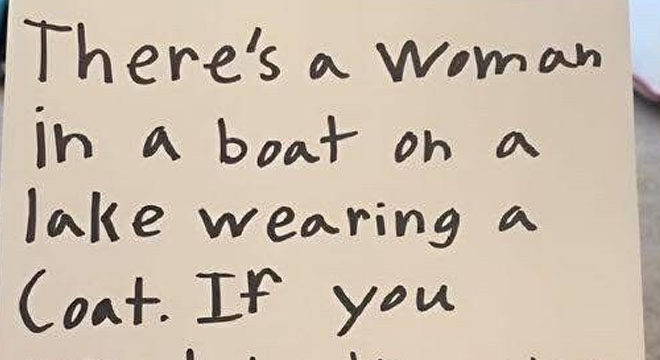 There's a woman
in a boat on a
lake wearing a
Coat. If you